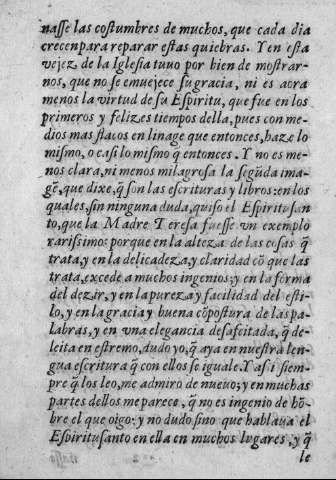 nasse las costumbres de muchos, que cada dia
crecen para reparar estas quiebras. Y en esta
vejez de la Iglesia tuuo por bien de mostrar-
nos, que no se emuejece su gracia, ni es aora
menos la virtud de su Espiritu, que fue en los
primeros y felizes tiempos della, pues con me-
dios mas flacos en linage que entonces, haze lo
mismo, o casi lo mismo q̃ entonces. Y no es me-
nos clara, ni menos milagrosa la segũda ima-
gẽ, que dixe, q̃ son las escrituras y libros: en los
quales, sin ninguna duda, quiso el Espiritusan
to, que la Madre Teresa fuesse vn exemplo
rarissimo: porque en la alteza de las cosas q̃
trata, y en la delicadeza, y claridad cõ que las
trata, excede a muchos ingenios: y en la forma
del dezir, y en la pureza y facilidad del esti-
lo, y en la gracia y buena cõpostura de las pa-
labras, y en vna elegancia desafeitada, q̃ de-
leita en estremo, dudo yo, q̃ aya en nuestra len-
gua escritura q̃ con ellos se iguale. Y assi siem-
pre q̃ los leo, me admiro de nueuo; y en muchas
partes dellos me parece, q̃ no es ingenio de hõ-
bre el que oigo: y no dudo, sino que hablaua el
Espiritusanto en ella en muchos lugares, y q̃
le